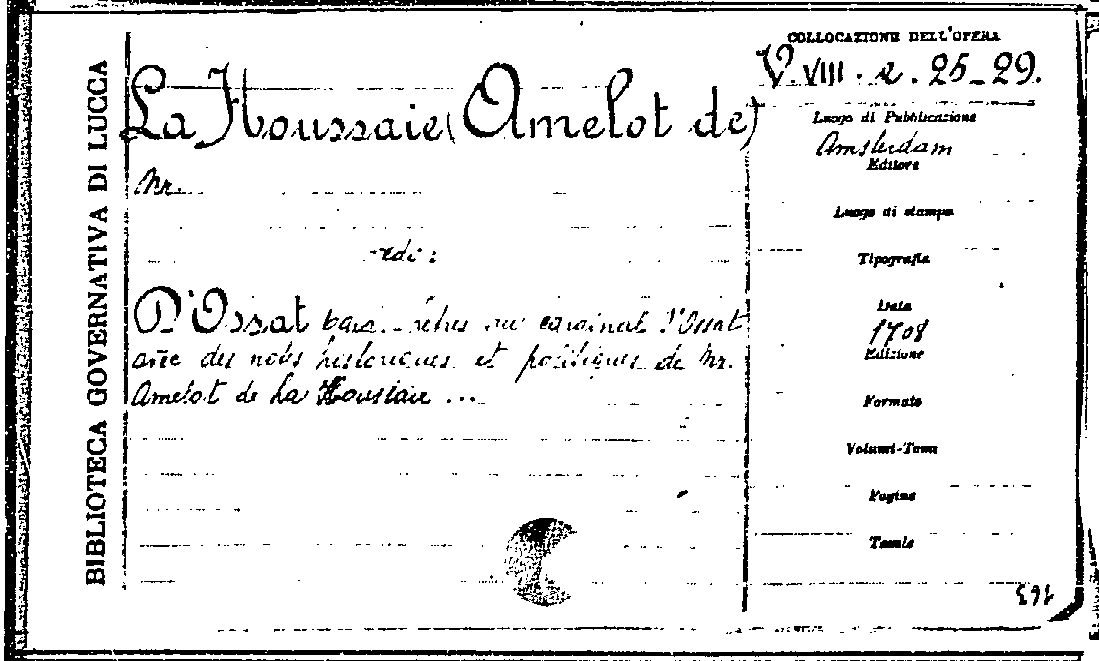 BIBLIOTECA GOVERNATIVA DI LUCCA
La Houssaie (Amelot de)
Mr.
D'Ossat
au cardinal d'Ossat
des notes historiques et politiques de Mr.
Amelot de La Houssaie ...
COLLOCAZIONE DELL'OPERA
V. VIII. e. 25-29.
Luogo di Pubblicazione
Amsterdam
Editore
Luogo di stampa
Tipografia
Data
1708
Edizione
Formato
Volumi-Tomi
Pagine
Tavole